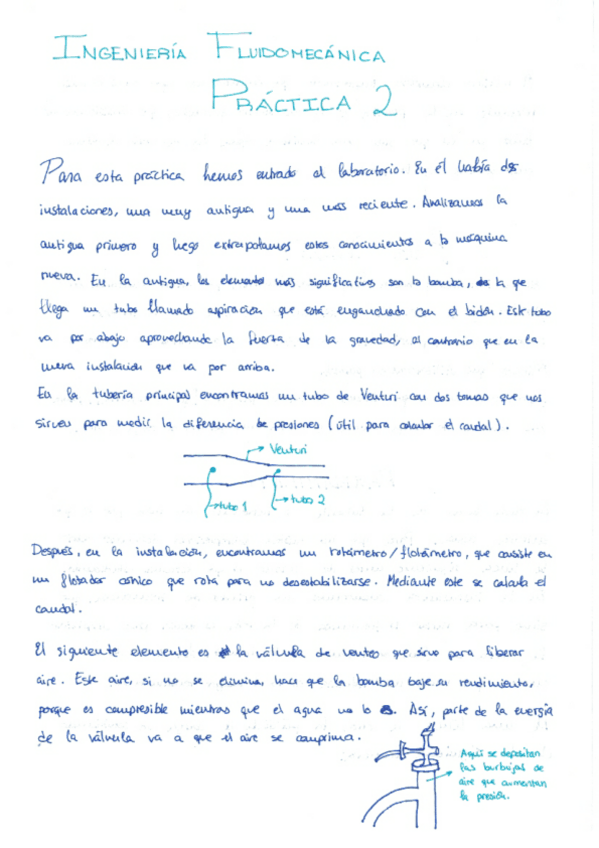 INGENIERÍA FLUIDOMECÁNICA
PRÁCTICA 2
Para esta práctica hemos entrado al laboratorio. En él había dos
instalaciones, una muy antigua y una más reciente. Analizamos la
antigua primero y luego extrapolamos estos conocimientos a la máquina
nueva. En la antigua, los elementos más significativos son la bomba, a la que
llega un tubo llamado aspiración que está enganchado con el bidón. Este tubo
va por abajo aprovechando la fuerza de la gravedad, al contrario que en la
nueva instalación que va por arriba.
En la tubería principal encontramos un tubo de Venturi con dos tomas que nos
sirven para medir la diferencia de presiones (útil para calcular el caudal).
Venturi
tubo 1
tubo 2
Después, en la instalación, encontramos un rotámetro/flotámetro, que consiste en
un flotador cónico que rota para no desestabilizarse. Mediante este se calcula el
caudal.
El siguiente elemento es la válvula de venteo que sirve para liberar
aire. Este aire, si no se elimina, hace que la bomba baje su rendimiento,
porque es compresible mientras que el agua no lo es. Así, parte de la energía
de la válvula va a que el aire se comprima.
Aquí se depositan
las burbujas de
aire que aumentan
la presión.